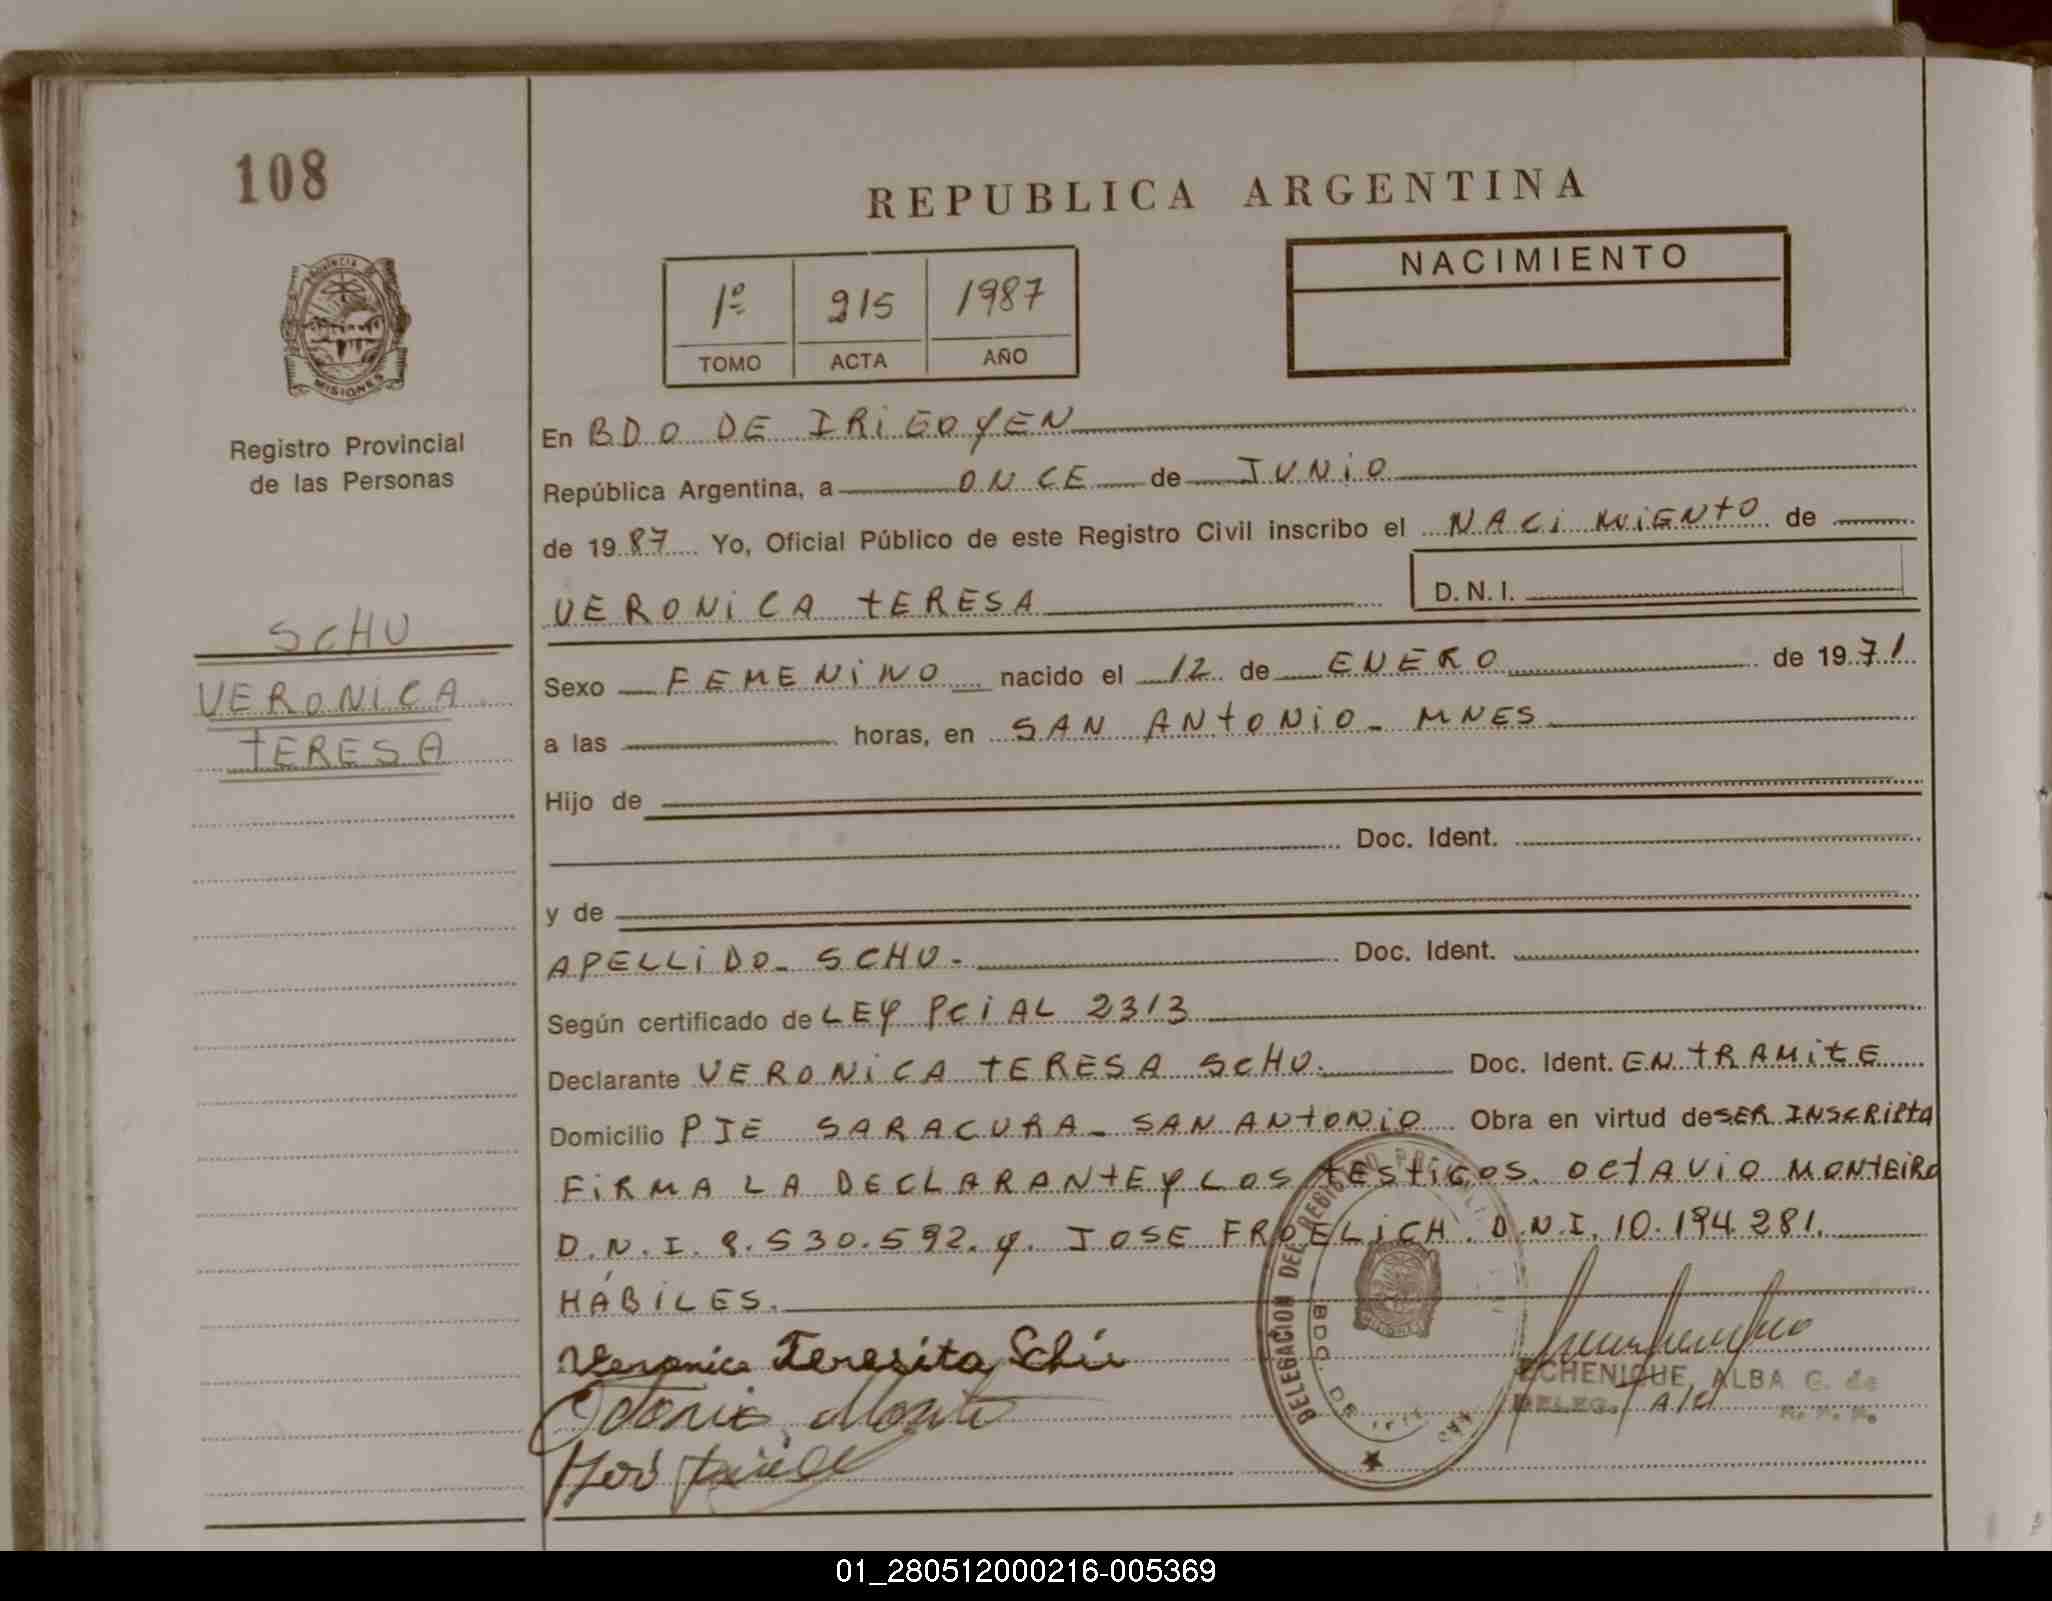 108
REPUBLICA ARGENTINA
NACIMIENTO
1º 215 1987
TOMO ACTA AÑO
PROVINCIA DE
MISIONES
Registro Provincial
de las Personas
SCHU
VERONICA
TERESA
En BDO DE IRIGOYEN
República Argentina, a ONCE de JUNIO
de 1987 Yo, Oficial Público de este Registro Civil inscribo el NACIMIENTO de
VERONICA TERESA D.N.I.
Sexo FEMENINO nacido el 12 de ENERO de 1971
a las horas, en SAN ANTONIO - MNES
Hijo de
Doc. Ident.
y de
APELLIDO - SCHU - Doc. Ident.
Según certificado de LEY PCIAL 2313
Declarante VERONICA TERESA SCHU. Doc. Ident. EN TRAMITE
Domicilio PJE SARACURA - SAN ANTONIO Obra en virtud de SER INSCRIPTA
FIRMA LA DECLARANTE Y LOS TESTIGOS. OCTAVIO MONTEIRO
D.N.I. 8.530.592. y. JOSE FROELICH. D.N.I. 10.194.281.
HÁBILES.
Veronica Teresita Schú
DELEGACION DEL REGISTRO
BDO. DE
MISIONES
ECHENIQUE, ALBA G. de
DELEG.
01_280512000216-005369